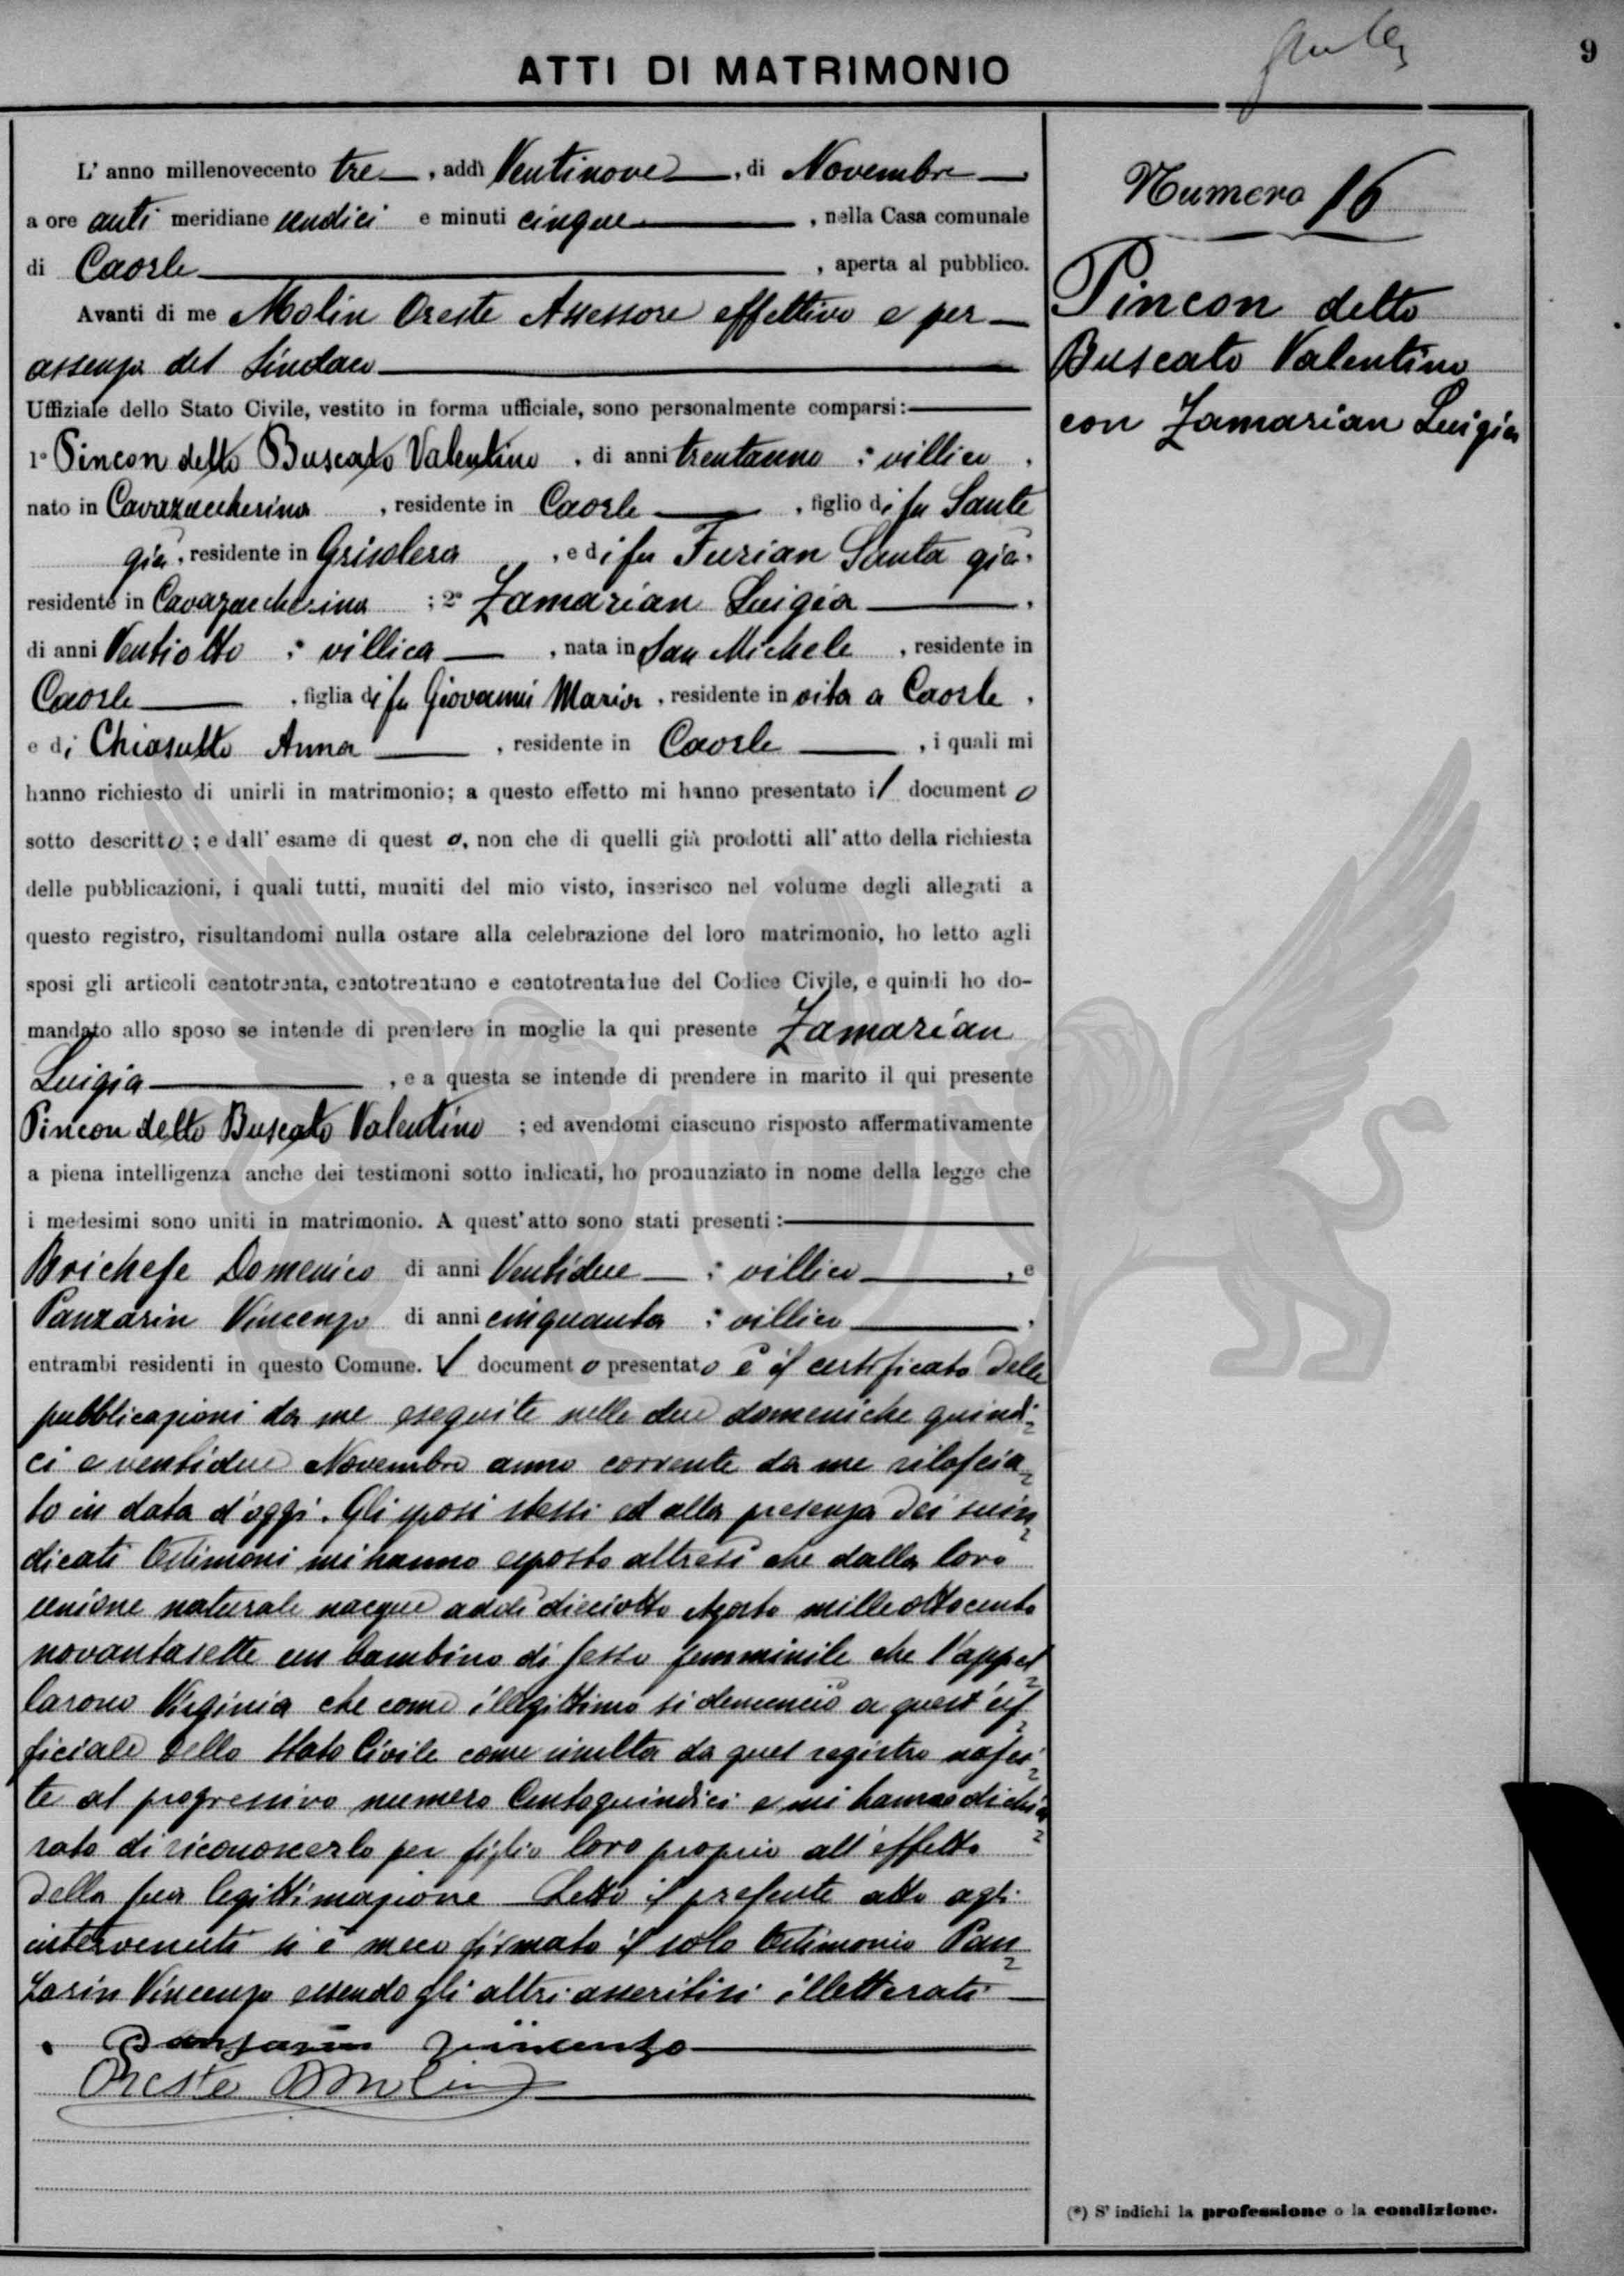 9
ATTI DI MATRIMONIO
L' anno millenovecento tre, addì Ventinove, di Novembre
a ore anti meridiane undici e minuti cinque, nella Casa comunale
di Caorle, aperta al pubblico.
Avanti di me Molin Oreste Assessore effettivo e per
assenza del Sindaco
Uffiziale dello Stato Civile, vestito in forma ufficiale, sono personalmente comparsi:
1° Pincon detto Buscato Valentino, di anni trentauno : villico,
nato in Cavazuccherina, residente in Caorle, figlio di fu Sante
già, residente in Grisolera, e di fu Furian Santa già,
residente in Cavazuccherina ; 2° Zamarian Luigia,
di anni Ventiotto : villica, nata in San Michele, residente in
Caorle, figlia di fu Giovanni Maria, residente in vita a Caorle,
e di Chiasutto Anna, residente in Caorle, i quali mi
hanno richiesto di unirli in matrimonio; a questo effetto mi hanno presentato il documento
sotto descritto; e dall' esame di questo, non che di quelli già prodotti all' atto della richiesta
delle pubblicazioni, i quali tutti, muniti del mio visto, inserisco nel volume degli allegati a
questo registro, risultandomi nulla ostare alla celebrazione del loro matrimonio, ho letto agli
sposi gli articoli centotrenta, centotrentuno e centotrentadue del Codice Civile, e quindi ho do-
mandato allo sposo se intende di prendere in moglie la qui presente Zamarian
Luigia, e a questa se intende di prendere in marito il qui presente
Pincon detto Buscato Valentino ; ed avendomi ciascuno risposto affermativamente
a piena intelligenza anche dei testimoni sotto indicati, ho pronunziato in nome della legge che
i medesimi sono uniti in matrimonio. A quest' atto sono stati presenti:
Brichese Domenico di anni Ventidue : villico, e
Panzarin Vincenzo di anni cinquanta : villico,
entrambi residenti in questo Comune. Il documento presentato è il certificato delle
pubblicazioni da me eseguite nelle due domeniche quindi=
ci e ventidue Novembre anno corrente da me rilascia=
to in data d'oggi. Gli sposi stessi ed alla presenza dei suin=
dicati testimoni mi hanno esposto altresì che dalla loro
unione naturale nacque addì dieciotto Agosto milleottocento
novantasette un bambino di sesso femminile che l'appel=
larono Virginia che come illegittimo si denunciò a quest'uf=
ficiale dello Stato Civile come risulta da quel registro nasci=
te al progressivo numero Centoquindici e mi hanno dichia=
rato di riconoscerlo per figlio loro proprio all'effetto
della sua legittimazione Letto il presente atto agli
intervenuti si è meco firmato il solo testimonio Pan=
zarin Vincenzo essendo gli altri asseritisi illetterati
Panzarin Vincenzo
Oreste Molin
Numero 16
Pincon detto
Buscato Valentino
con Zamarian Luigia
(*) S' indichi la professione o la condizione.